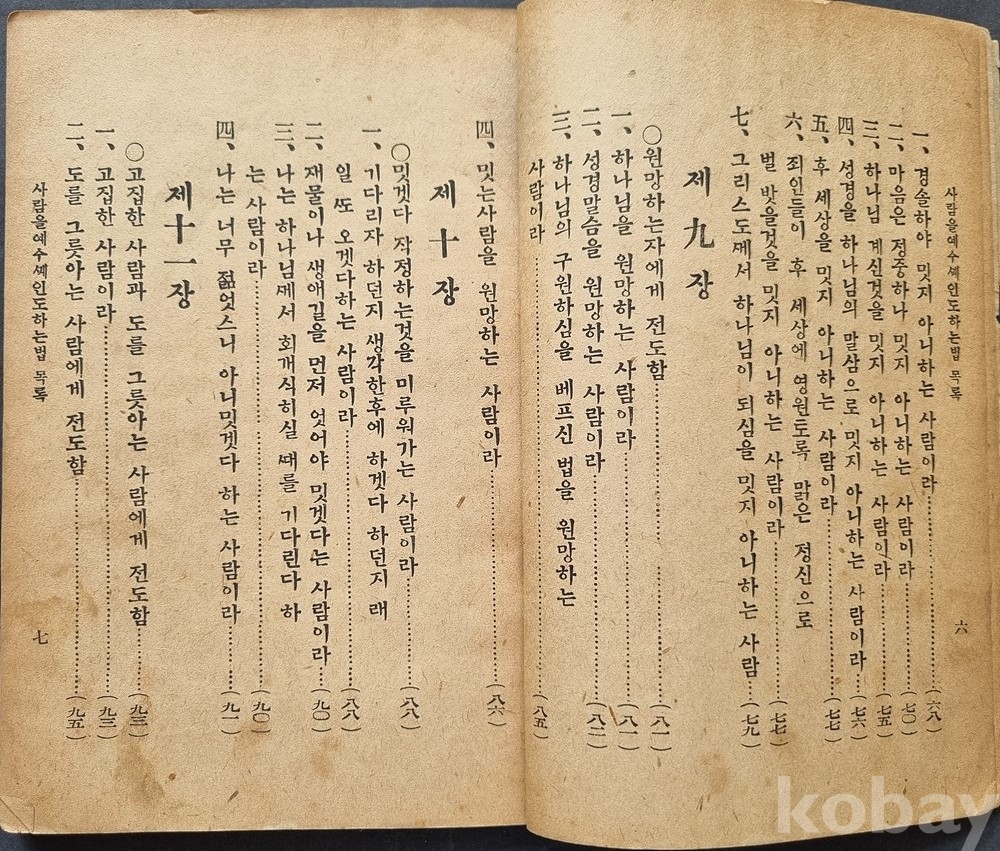 사람을예수ᄭᅦ인도하는법 목록
六
一、경솔하야 밋지 아니하는 사람이라(六八)
二、마음은 정중하나 밋지 아니하는 사람이라(七〇)
三、하나님 계신것을 밋지 아니하는 사람인라(七五)
四、성경을 하나님의 말삼으로 밋지 아니하는 사람이라(七六)
五、후 세상을 밋지 아니하는 사람이라(七七)
六、죄인들이 후 세상에 영원토록 맑은 정신으로
벌 밧을것을 밋지 아니하는 사람이라(七七)
七、그리스도ᄭᅦ서 하나님이 되심을 밋지 아니하는 사람(七九)
제九장
○원망하는자에게 전도함(八一)
一、하나님을 원망하는 사람이라(八一)
二、성경말슴을 원망하는 사람이라(八二)
三、하나님의 구원하심을 베프신 법을 원망하는
사람이라(八五)
四、밋는사람을 원망하는 사람이라(八六)
제十장
○밋겟다 작정하는것을 미루워가는 사람이라(八八)
一、기다리자 하던지 생각한후에 하겟다 하던지 래
일 ᄯᅩ 오겟다하는 사람이라(八八)
二、재물이나 생애길을 먼저 엇어야 밋겟다는 사람이라(九〇)
三、나는 하나님ᄭᅦ서 회개식히실 ᄯᅢ를 기다린다 하
는 사람이라(九〇)
四、나는 너무 젊엇스니 아니밋겟다 하는 사람이라(九一)
제十一장
○고집한 사람과 도를 그릇아는 사람에게 전도함(九三)
一、고집한 사람이라(九三)
二、도를 그릇아는 사람에게 전도함(九五)
사람을예수ᄭᅦ인도하는법 목록
七
kobay